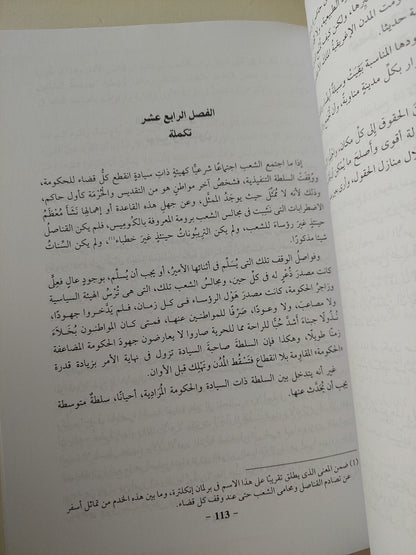 الفصل الرابع عشر
تكملة
إذا ما اجتمع الشعب اجتماعًا شرعيًّا كهيئةٍ ذاتِ سيادةٍ انقطع كلُّ قضاء للحكومة،
ووقفت السلطة التنفيذية، فشخصُ آخر مواطنٍ هو من التقديس والحُرْمَة كأول حاكم،
وذلك لأنه لا مُمَثِّل حيث يوجَدُ الممثَّل، وعن جهلِ هذه القاعدة أو إهمالِها نَشَأ مُعْظَمُ
الاضطرابات التى نَشِبت فى مجالس الشعب برومة المعروفة بالكُومِيس، فلم يكن القناصلُ
حينئذٍ غيرَ رؤساءَ للشعب، ولم يكن التريبُونات حينئذٍ غيرَ خطباء(١)، ولم يكن السِّنَاتُ
شيئا مذكورًا.
وفواصلُ الوقف تلك التى يُسَلِّم فى أثنائها الأميرُ، أو يجب أن يُسلِّم، بوجودِ عالٍ فعلىٍّ
كانت مصدرَ ذُعْرٍ له فى كلِّ حين، ومجالسُ الشعب تلك، التى هى تُرْسُ الهيئة السياسية
وزاجرُ الحكومة، كانت مصدرَ هَوْل الرؤساء فى كل زمان، فلم يَدَّخروا جهودًا،
ولا مصاعبَ، ولا وعودًا، صَرْفًا للمواطنين عنها، فمتى كان المواطنون بُخَلاءَ
نُذُولًا جبناءَ أشدَّ حُبًّا للراحة مما للحرية صاروا لا يعارضون جهودَ الحكومة المضاعفة
زمنًا طويلًا، وهكذا فإن السلطةَ صاحبةَ السيادة تزول فى نهاية الأمر بزيادة قدرة
«الحكومة» المقاوِمة بلا انقطاع فتَسْقُط المُدُن وتَهْلِك قبل الأوان.
غير أنه يتدخل بين السلطة ذات السيادة والحكومة المُرَادِية، أحيانًا، سلطةٌ متوسطة
يجب أن يُتَحَدَّث عنها.
(١) ضمن المعنى الذى يطلق تقريبًا على هذا الاسم فى برلمان إنكلترة، وما بين هذه الخدم من تماثل أسفر
عن تصادم القناصل ومحامى الشعب حتى عند وقف كل قضاء.
- 113 -